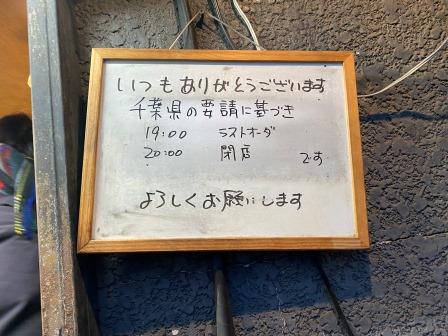 いつもありがとうございます
千葉県の要請に基づき
19:00 ラストオーダ
20:00 閉店 です
よろしくお願いします